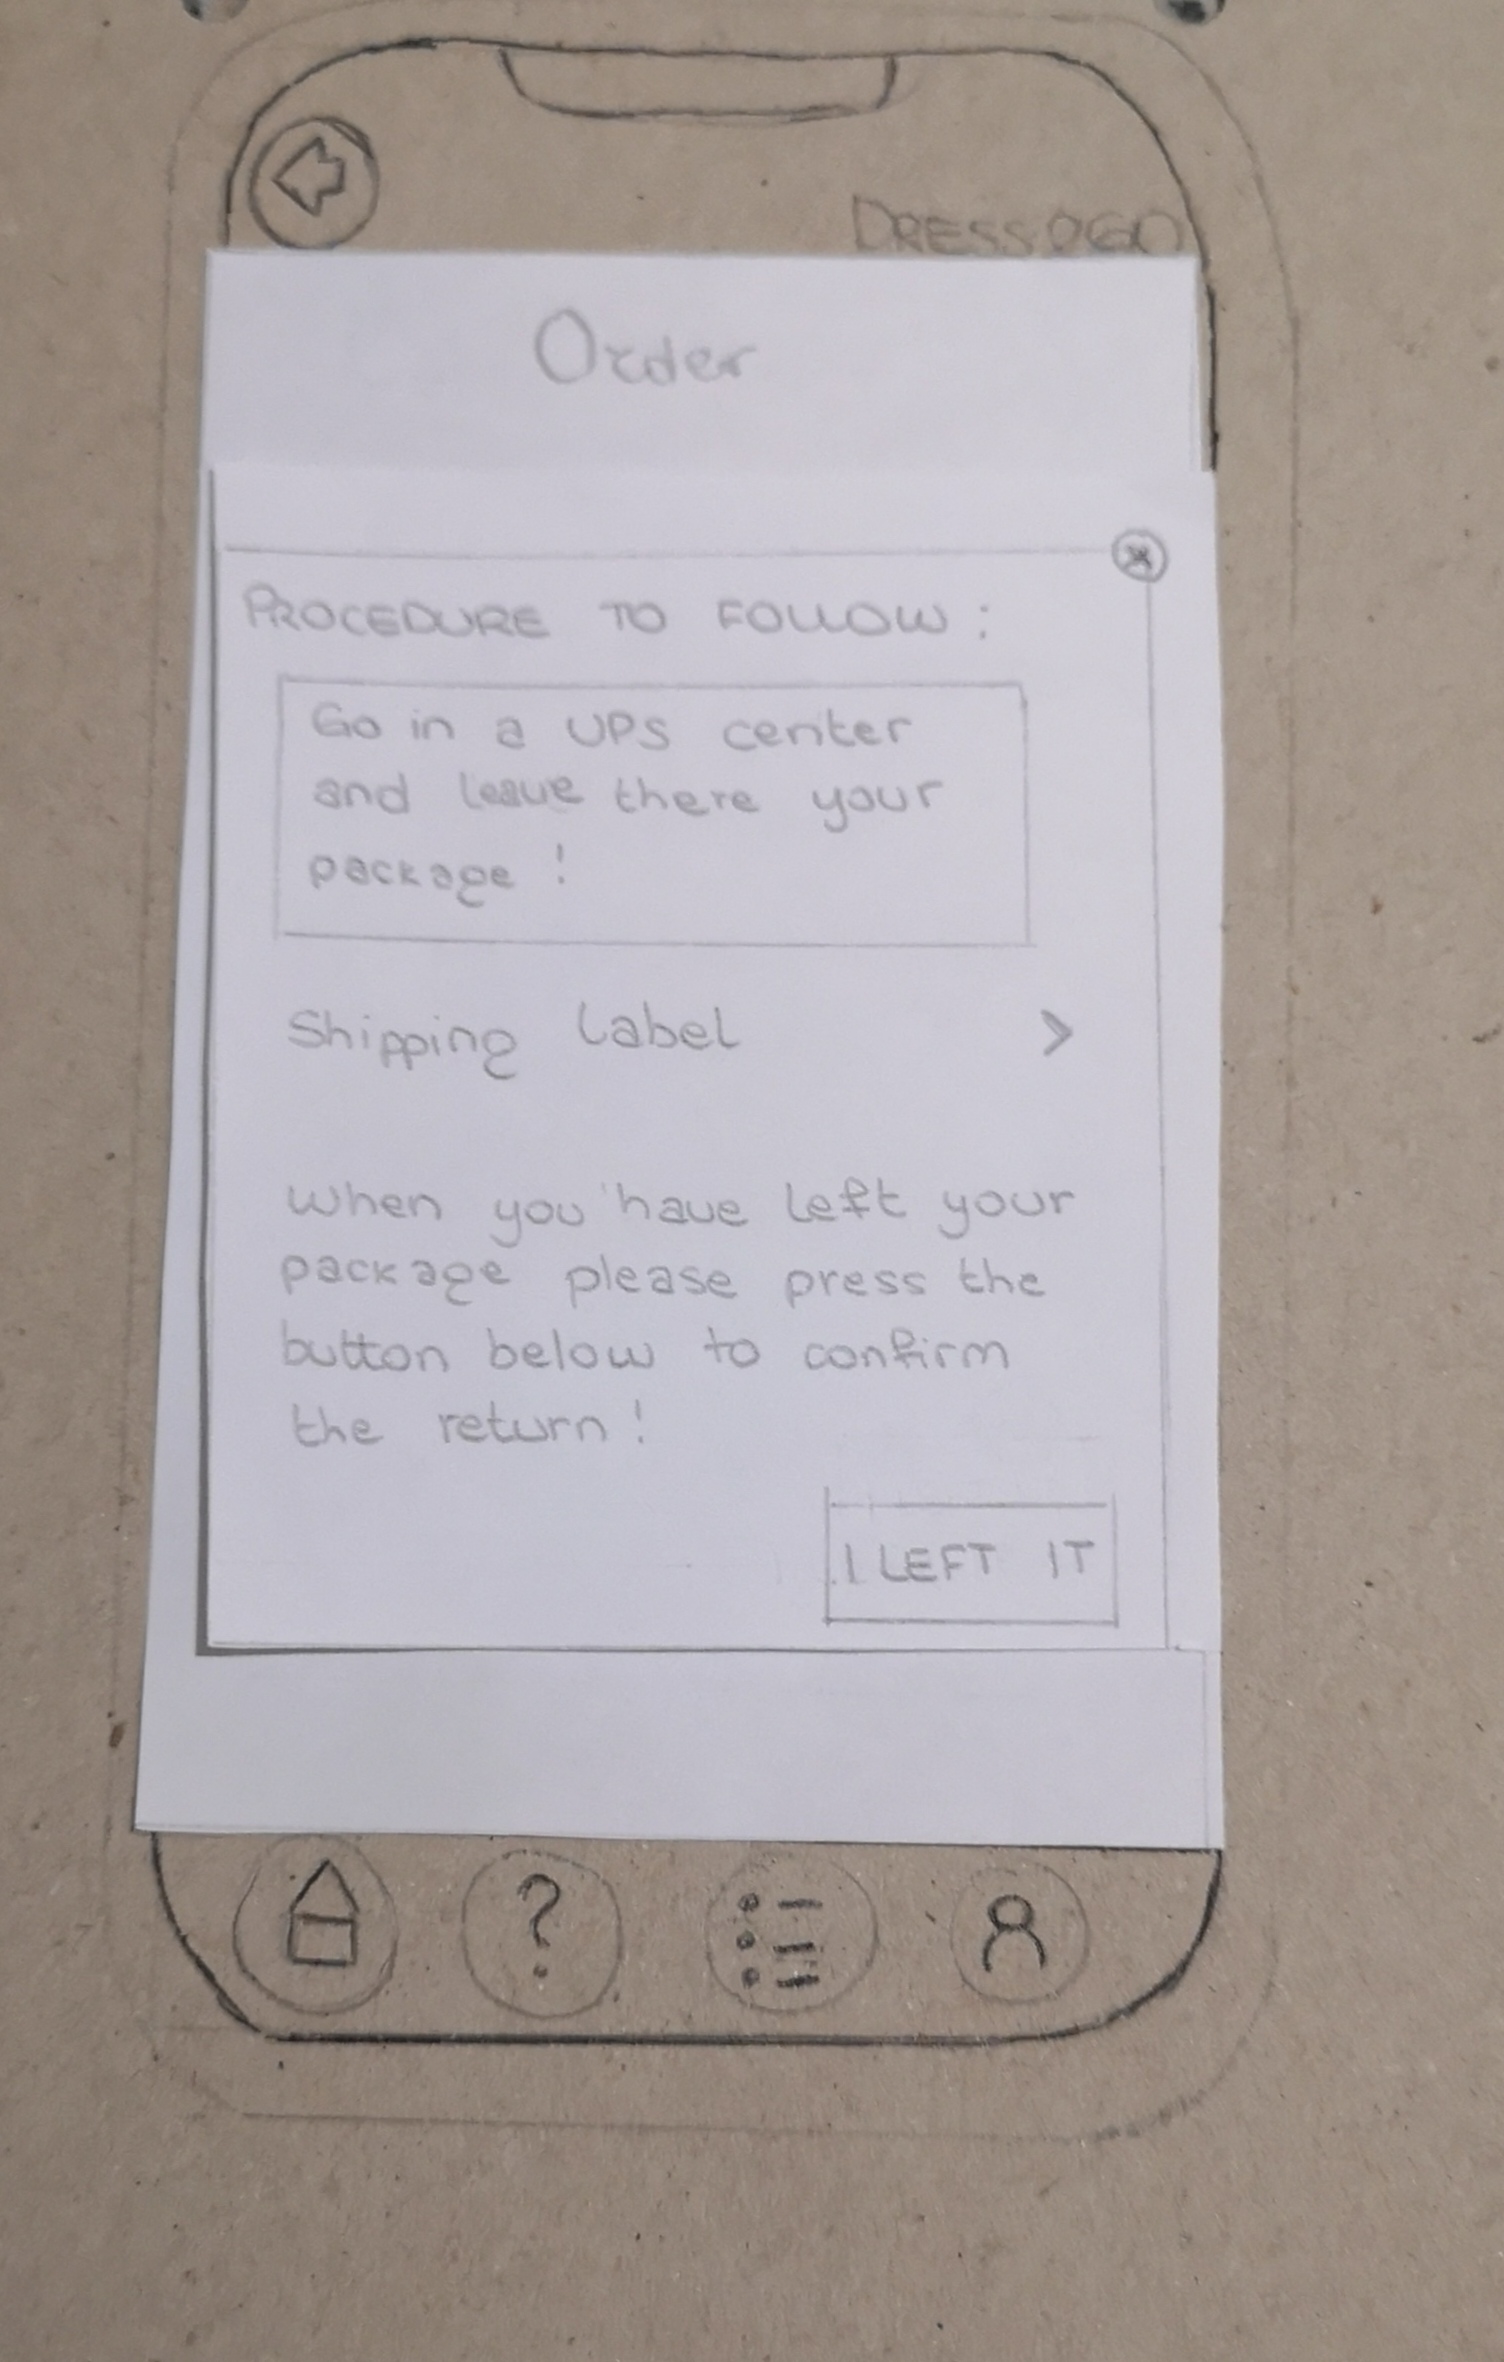 DRESS2GO
Order
PROCEDURE TO FOLLOW :
Go in a UPS center
and leave there your
package !
Shipping Label
>
When you have left your
package please press the
button below to confirm
the return !
I LEFT IT
?